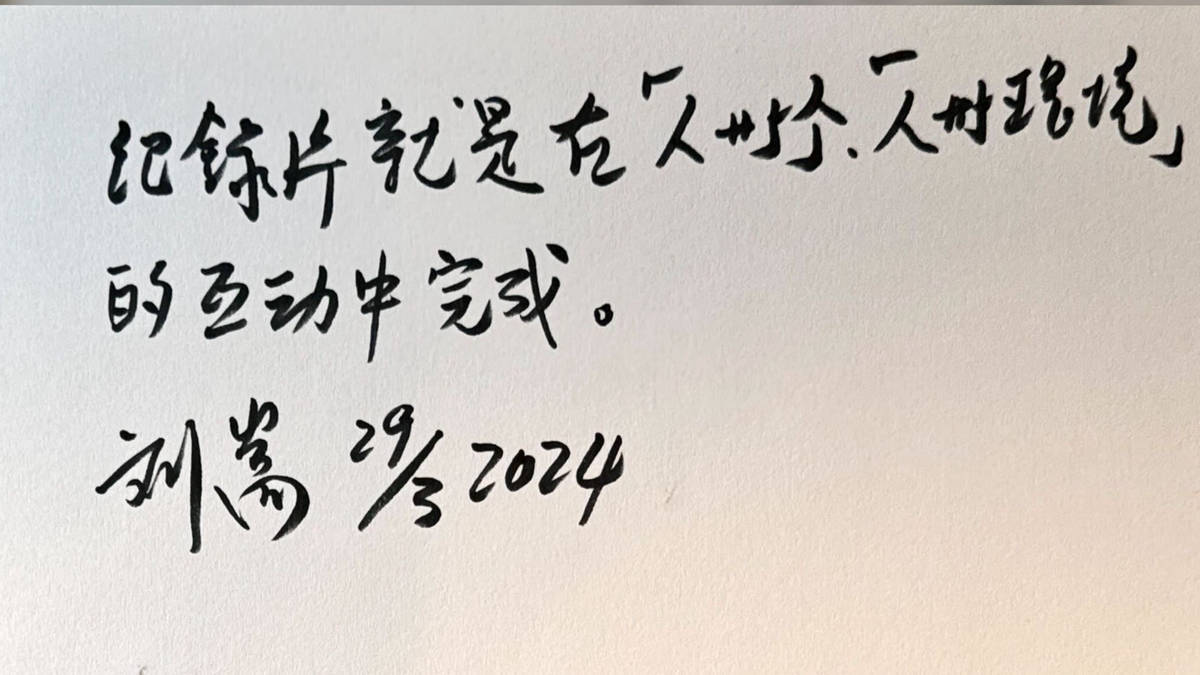 纪錄片就是在「人對人」、「人對環境」
的互动中完成。
刘嵩 29/3 2024